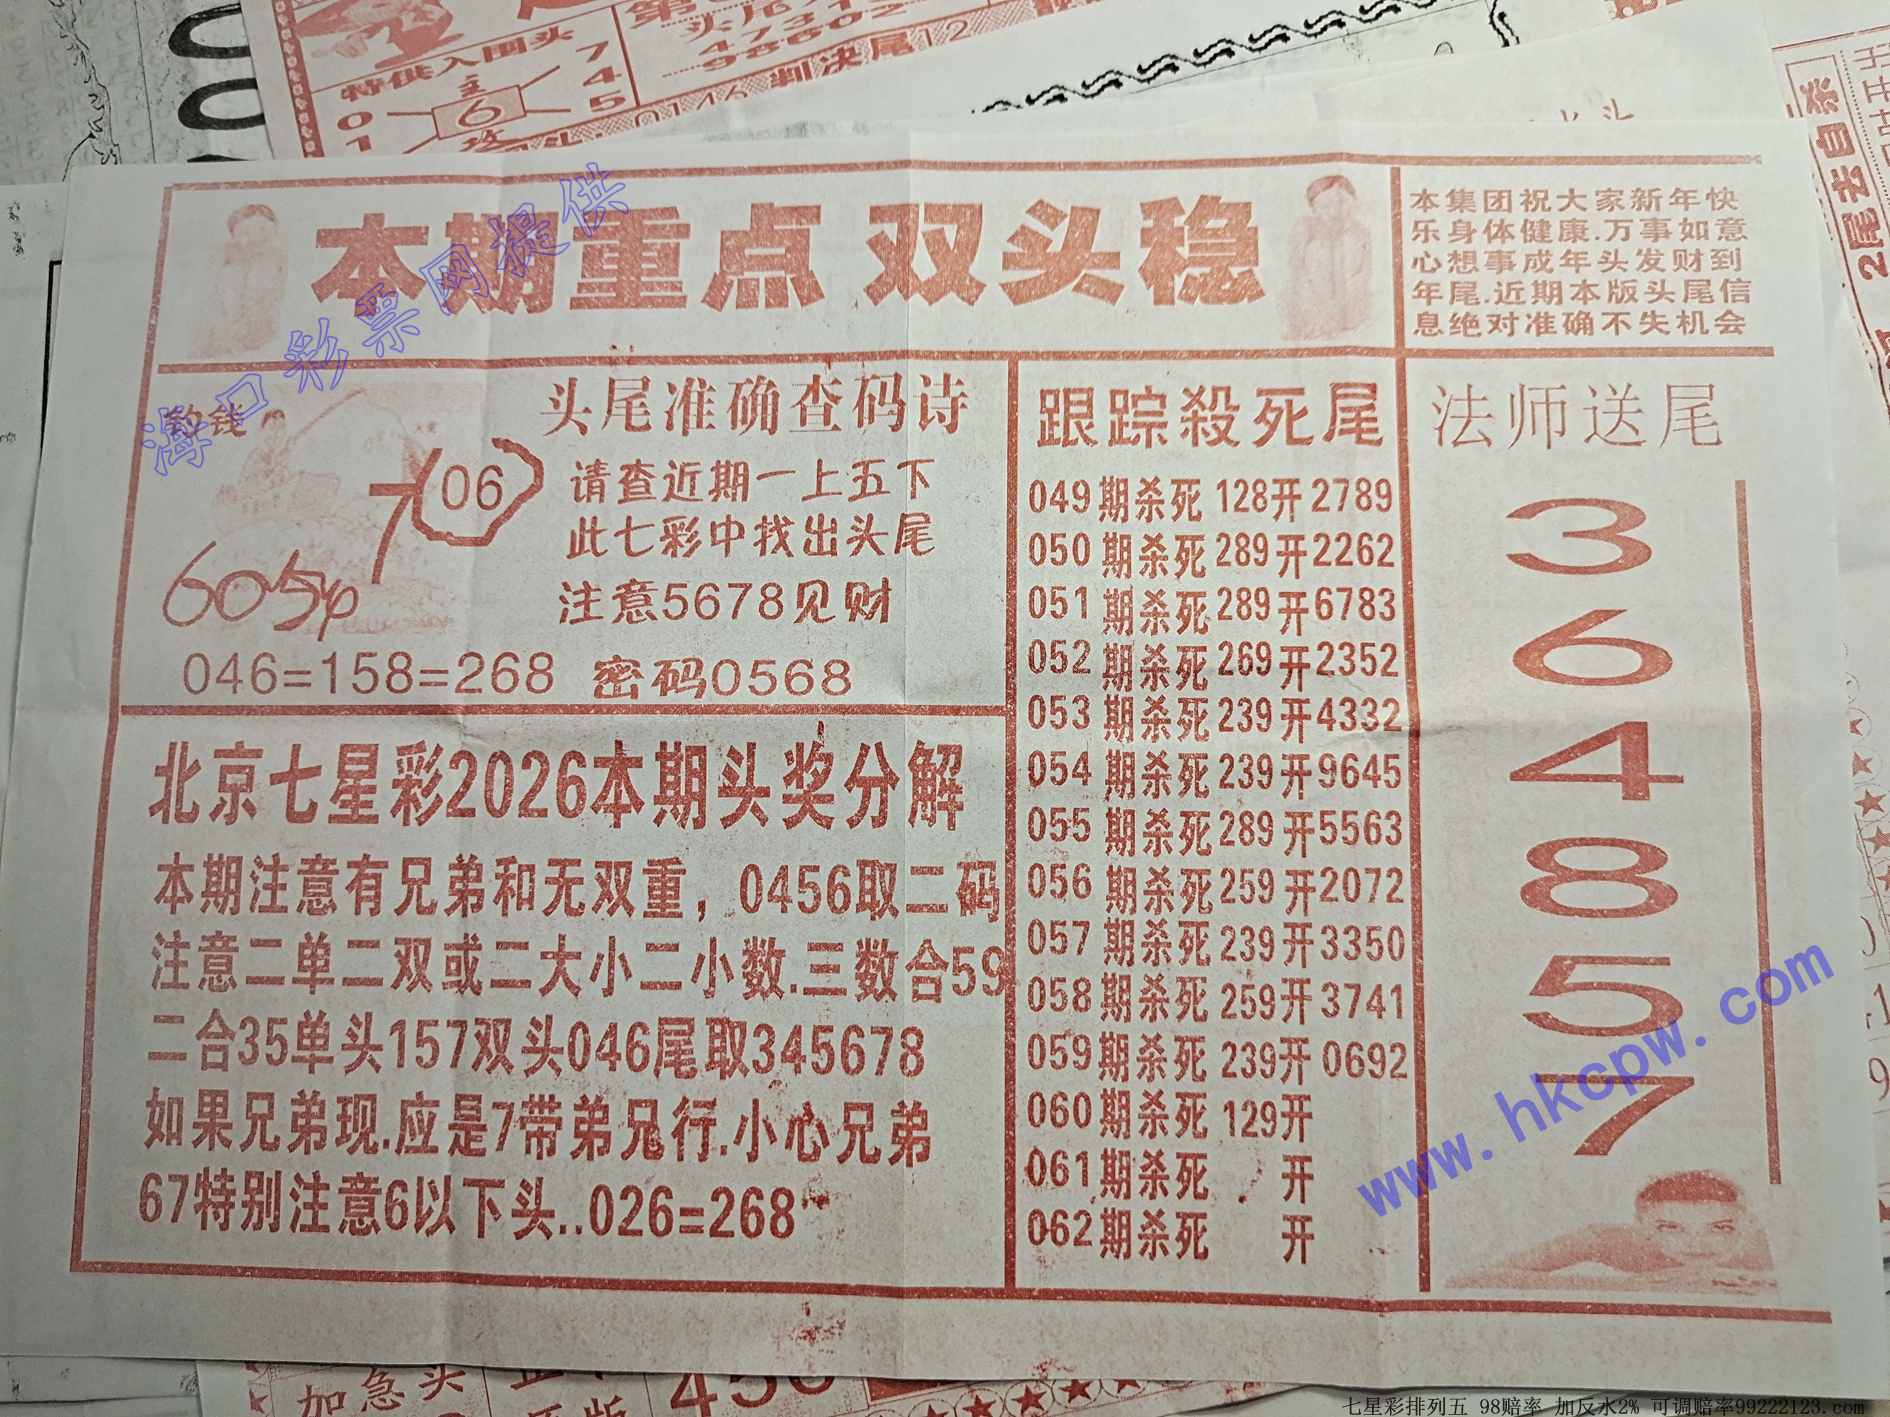 特供入围头
主
0
6
7
4
1
攻
5
头尾
4731
98602
0146
判决尾12
本期重点 双头稳
本集团祝大家新年快
乐身体健康.万事如意
心想事成年头发财到
年尾.近期本版头尾信
息绝对准确不失机会
海口彩票网提供
钓钱
7
06
605
头尾准确查码诗
请查近期一上五下
此七彩中找出头尾
注意5678见财
046=158=268 密码0568
北京七星彩2026本期头奖分解
本期注意有兄弟和无双重，0456取二码
注意二单二双或二大小二小数.三数合59
二合35单头157双头046尾取345678
如果兄弟现.应是7带弟兄行.小心兄弟
67特别注意6以下头..026=268
跟踪殺死尾
049期杀死 128开2789
050期杀死 289开2262
051期杀死 289开6783
052期杀死 269开2352
053期杀死 239开4332
054期杀死 239开9645
055期杀死 289开5563
056期杀死 259开2072
057期杀死 239开3350
058期杀死 259开3741
059期杀死 239开0692
060期杀死 129开
061期杀死 开
062期杀死 开
法师送尾
3
6
4
8
5
7
www.hkcpw.com
2尾法自杀
加急头
456
七星彩排列五 98赔率 加反水2% 可调赔率99222123.com